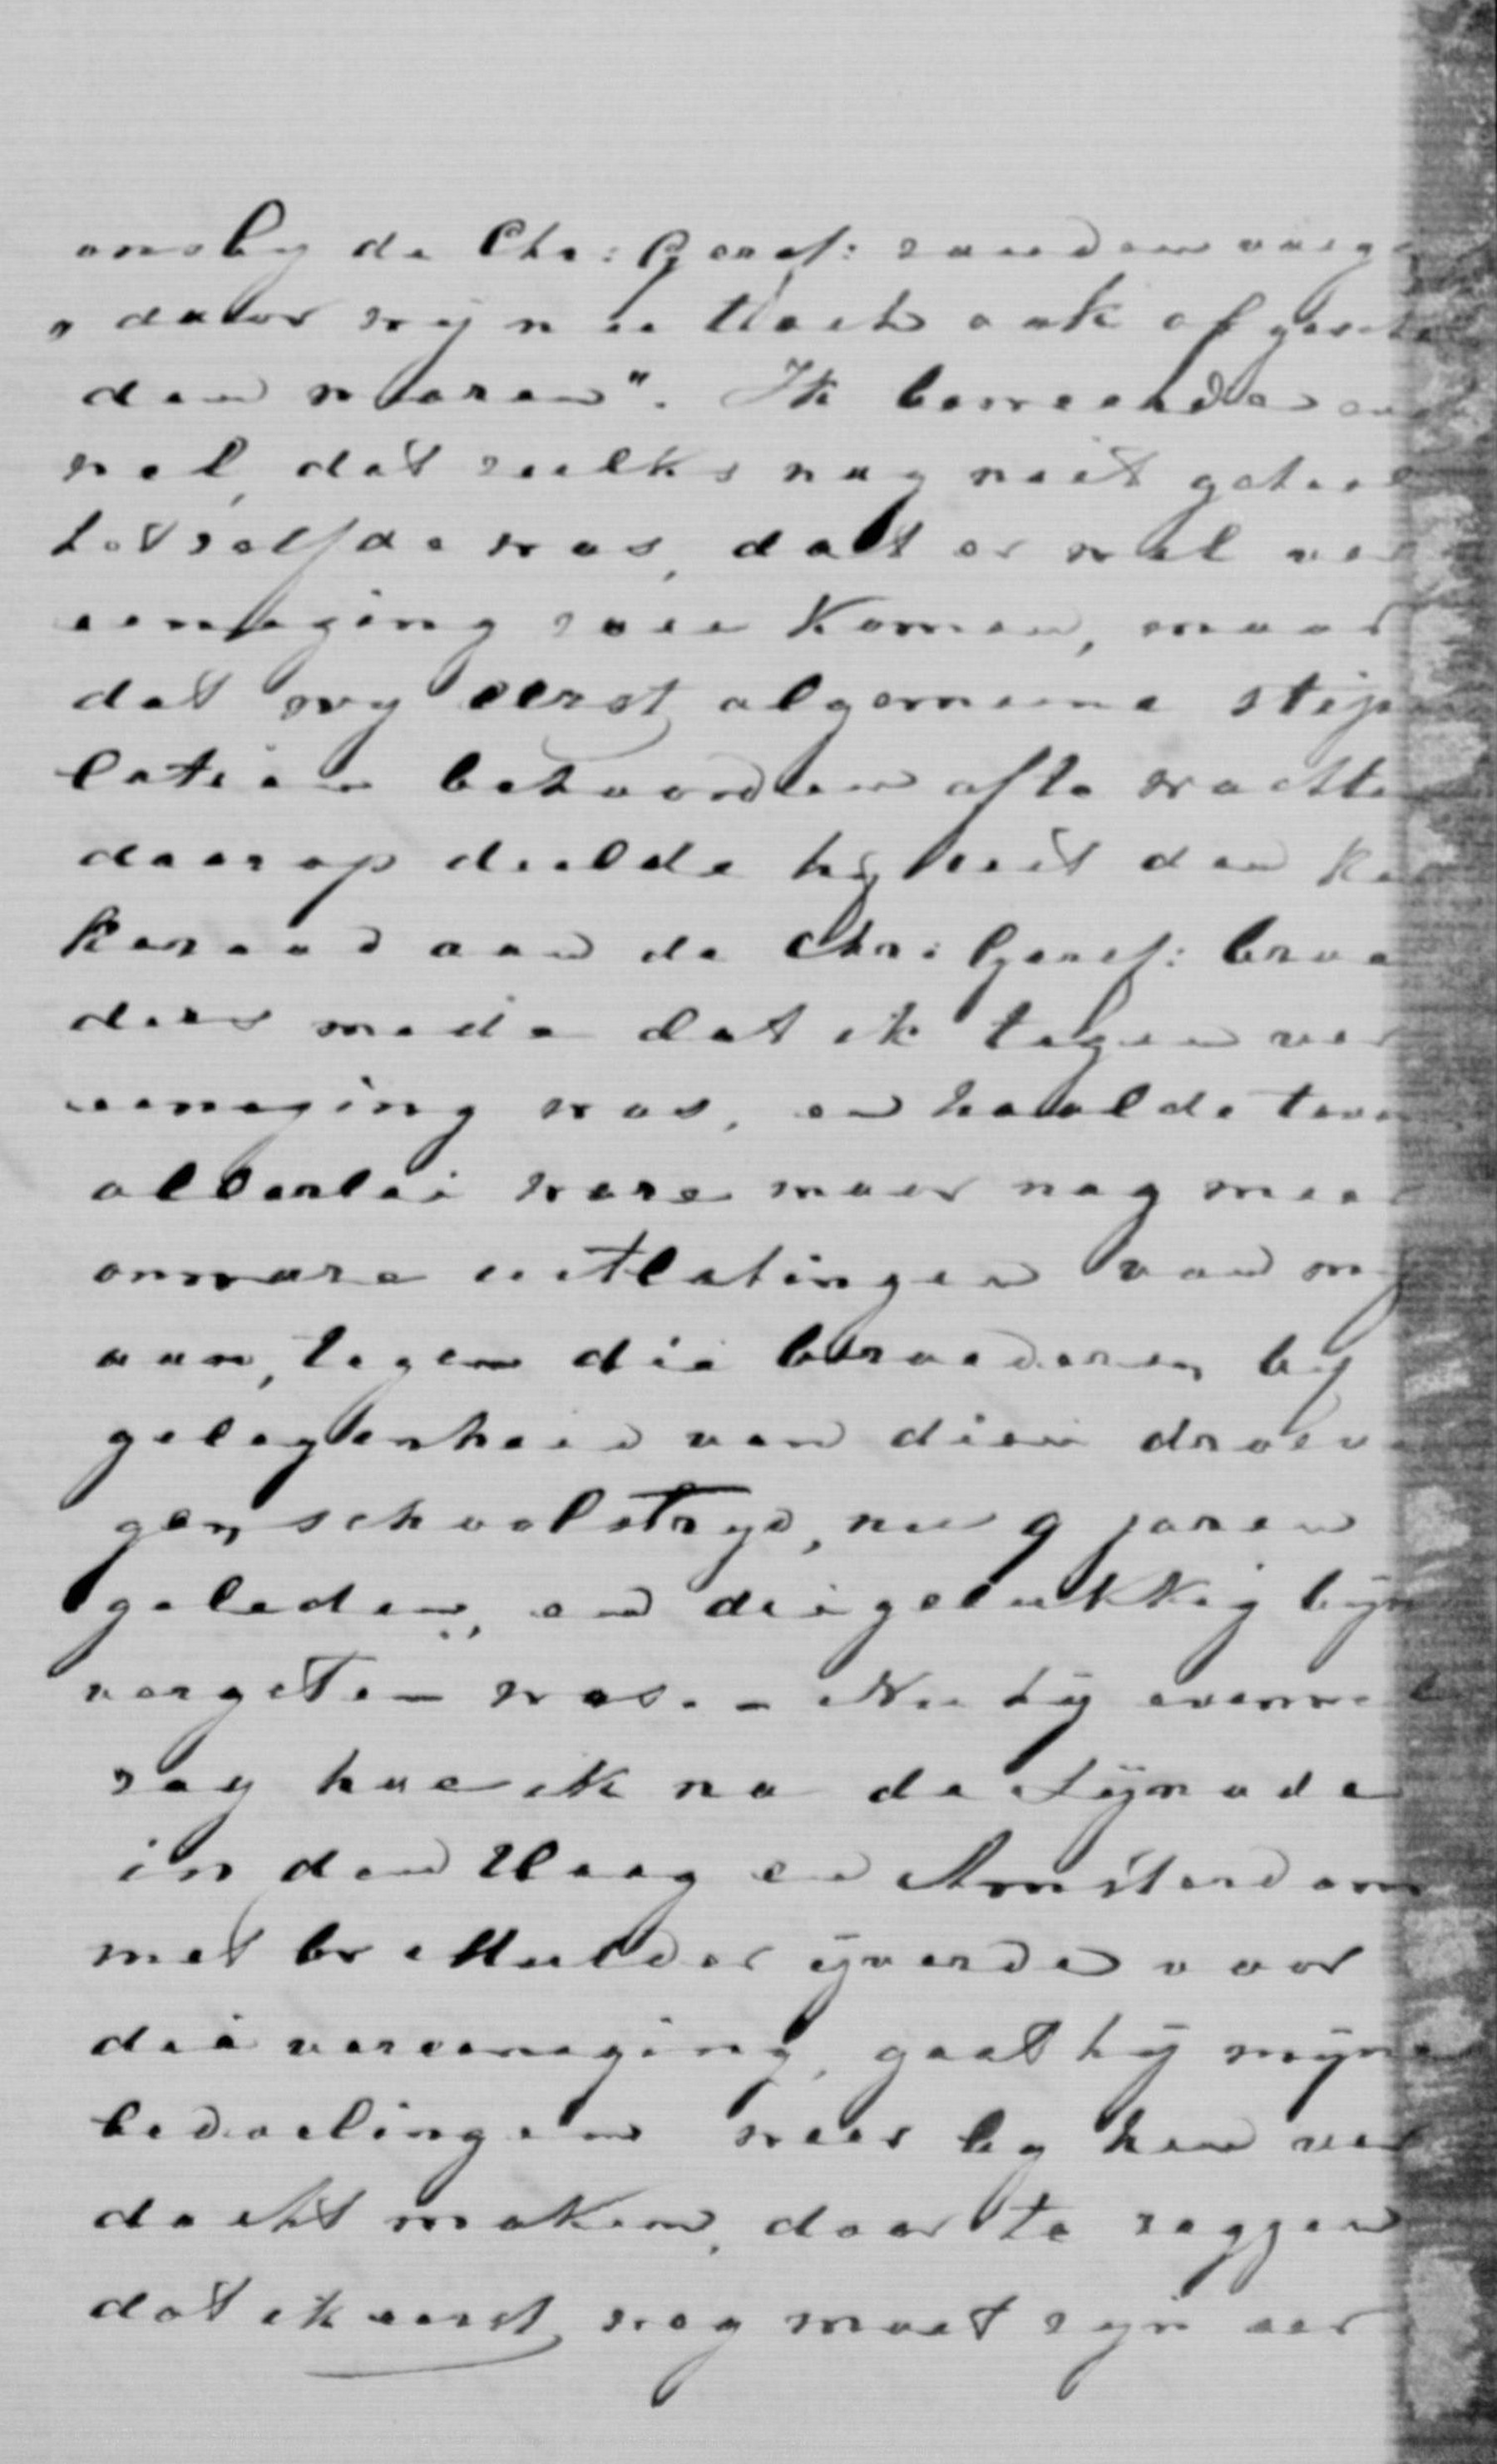 ons by de Chr: Geref: zouden voege
„daar wij nu toch ook afgeschei
den waren". Ik beweerde ech
wel, dat zulks nog niet geheel
hetzelfde was, dat er wel ver
eeniging zou komen, maar
dat wy eerst algemeene stipu
latiën behoorden af te wachten
daarop deelde hy uit den ker
keraad aan de Chr: Geref: broe
ders mede dat ik tegen ver
eeneging was, en haalde toen
allerlei ware maar nog meer
onware uitlatingen van my
aan, tegen die broederen by
gelegenheid van dien droevi
gen schoolstryd, nu 9 jaren
geleden, en die gelukkig bijna
vergeten was. - Nu hij evenwel
zag hoe ik na de Synode
in den Haag en Amsterdam
met br Mulder ijverde voor
die vereeneging, gaat hij mijne
bedoelingen weer by hen ver
dacht maken, door te zeggen
dat ik eerst weg moet zijn eer